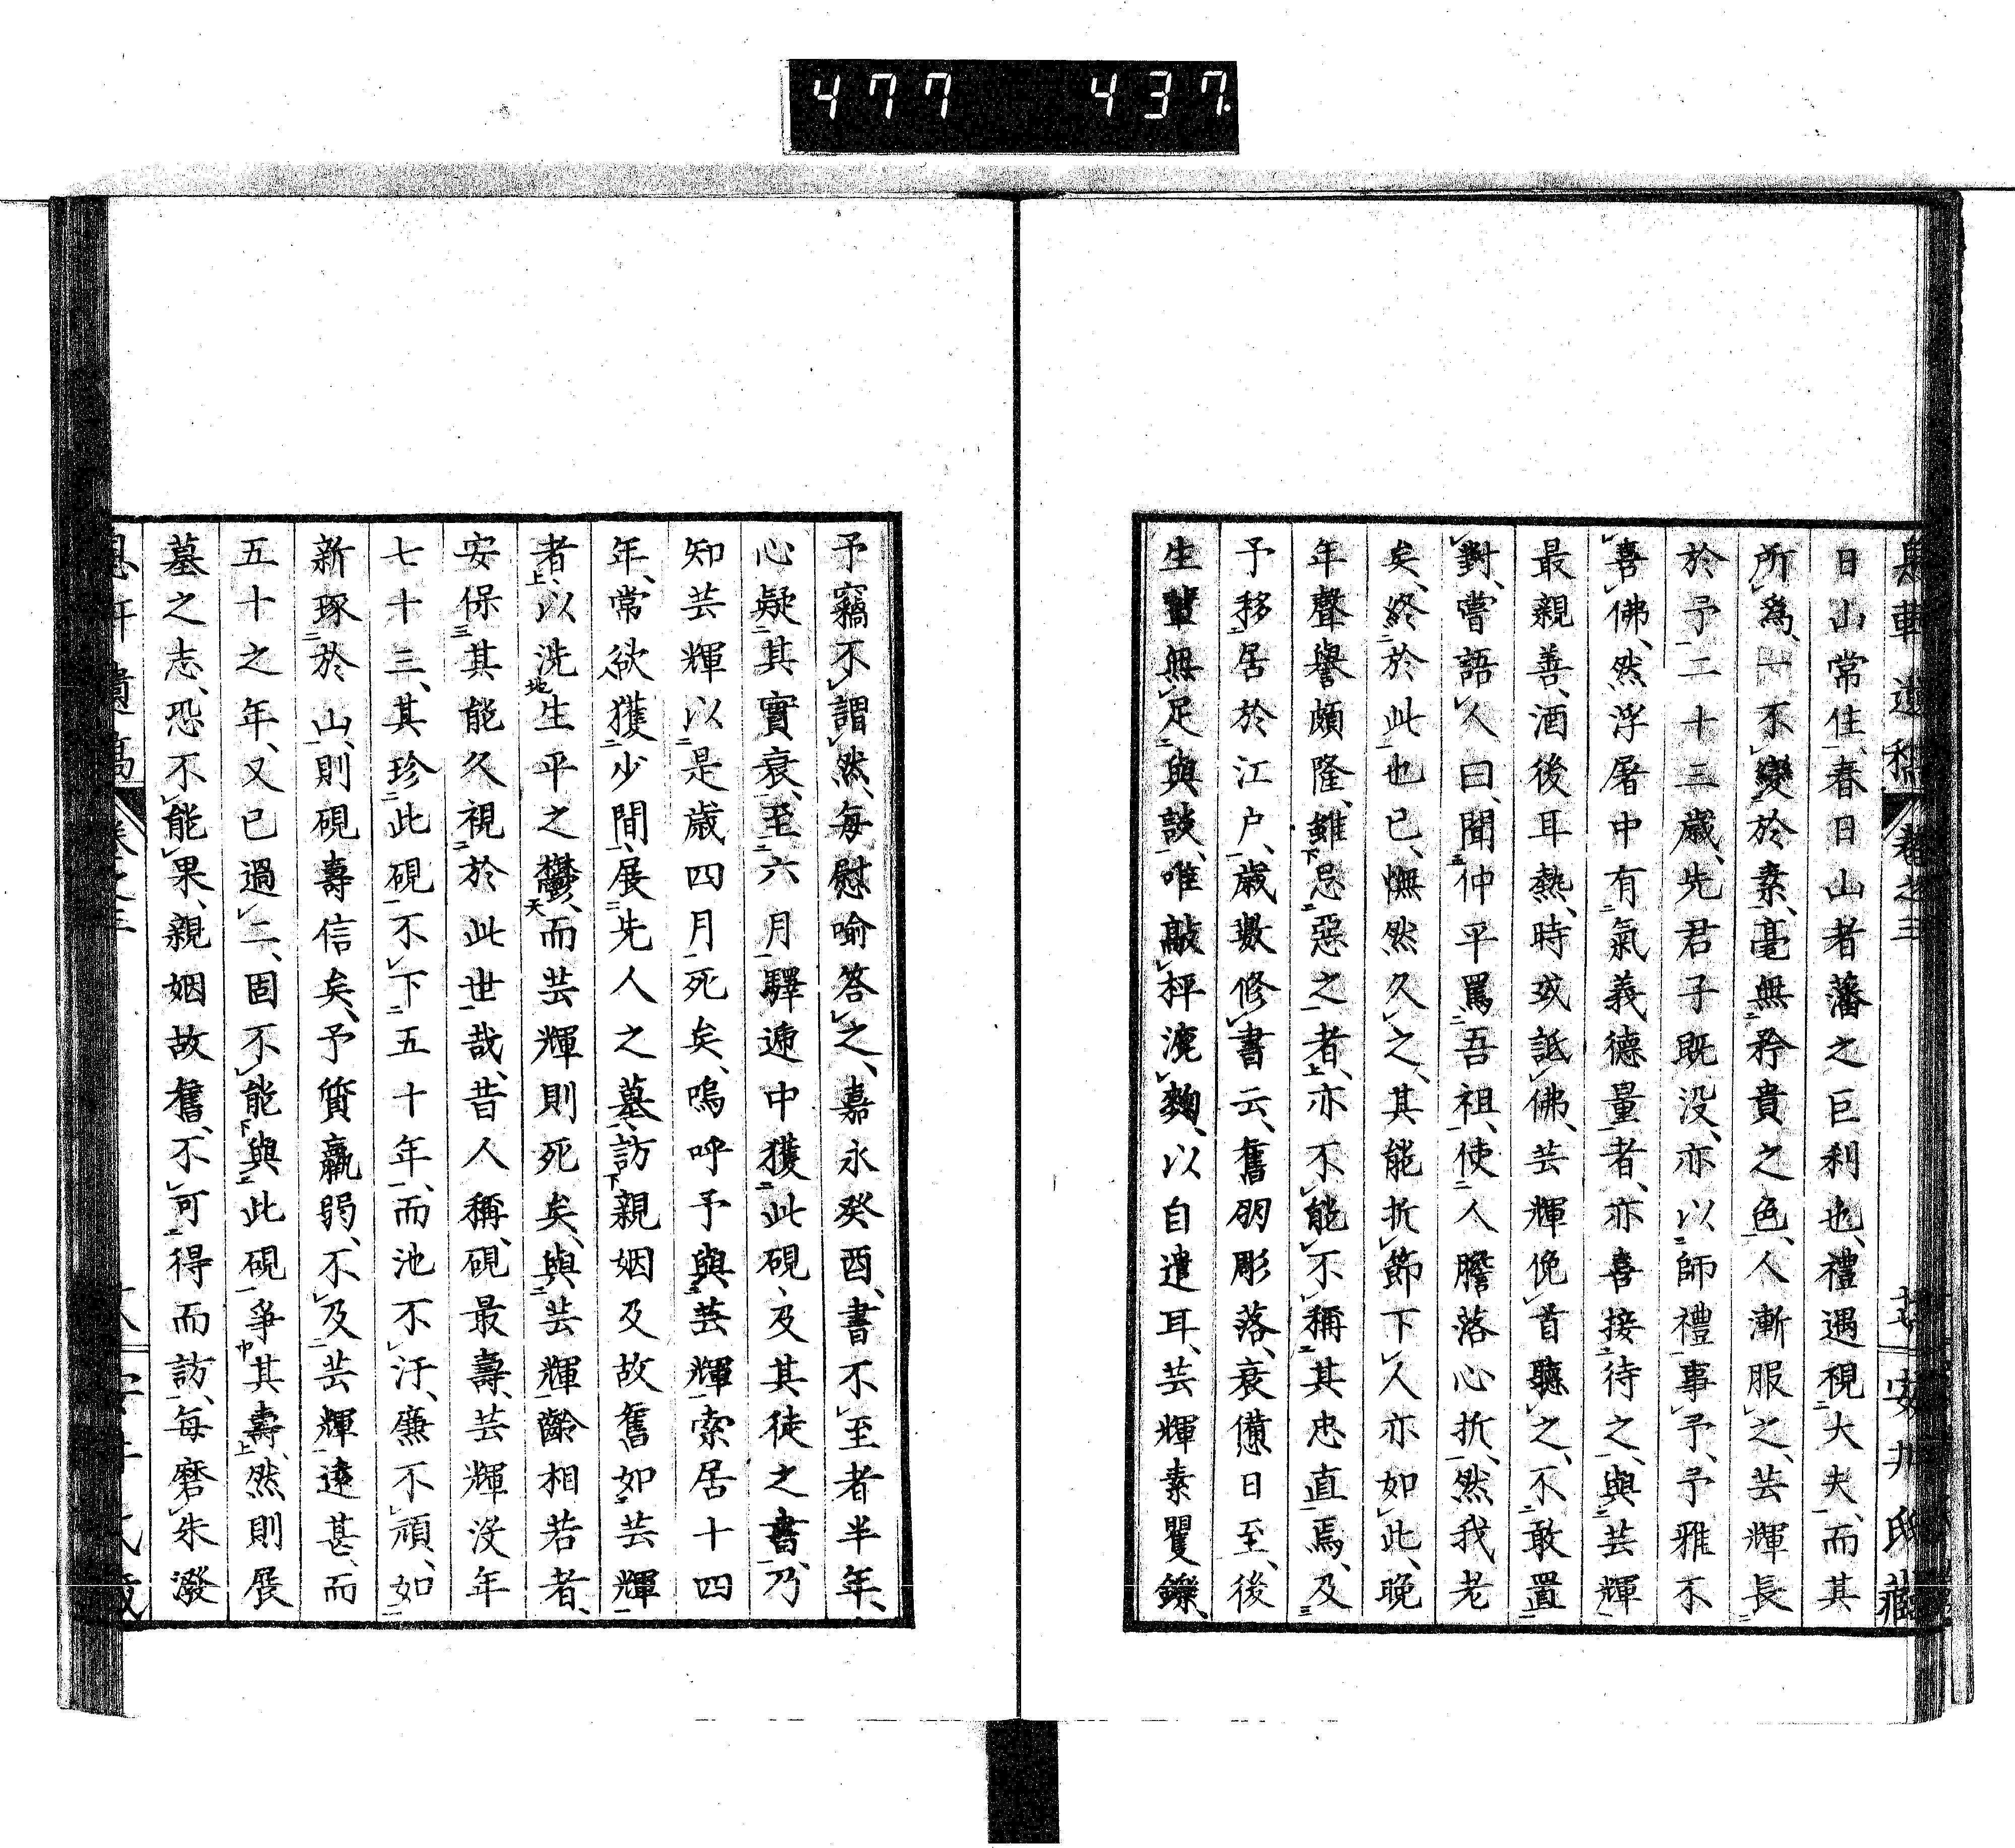 477 437
日山常住、春日山者藩之巨刹也、禮遇視大夫、而其
所爲、一不變於素、毫無矜貴之色、人漸服之、芸輝長
於予二十三歲、先君子既没、亦以師禮事予、予雅不
喜佛、然浮屠中有氣義德量者、亦喜接待之、與芸輝
最親善、酒後耳熱、時或詆佛、芸輝俛首聽之、不敢置
對、嘗語人曰、聞仲平罵吾祖、使人膽落心折、然我老
矣、終於此也已、憮然久之、其能折節下人亦如此、晚
年聲譽頗隆、雖忌惡之者、亦不能不稱其忠直焉、及
予移居於江户、歲數修書云、舊朋彫落、衰憊日至、後
生輩無足與談、唯敲枰漉麴、以自遣耳、芸輝素矍鑠、
予竊不謂然、每慰喻答之、嘉永癸酉、書不至者半年、
心疑其實衰、至六月驛遞中獲此硯、及其徒之書、乃
知芸輝以是歲四月死矣、嗚呼予與芸輝索居十四
年、常欲獲少間、展先人之墓、訪親姻及故舊如芸輝
者、以洗生平之鬱、而芸輝則死矣、與芸輝齡相若者、
安保其能久視於此世哉、昔人稱、硯最壽、芸輝没年
七十三、其珍此硯不下五十年、而池不汙、廉不頑、如
新琢於山、則硯壽信矣、予質羸弱、不及芸輝遠甚、而
五十之年、又已過二、固不能與此硯爭其壽、然則展
墓之志、恐不能果、親姻故舊、不可得而訪、每磨朱潑